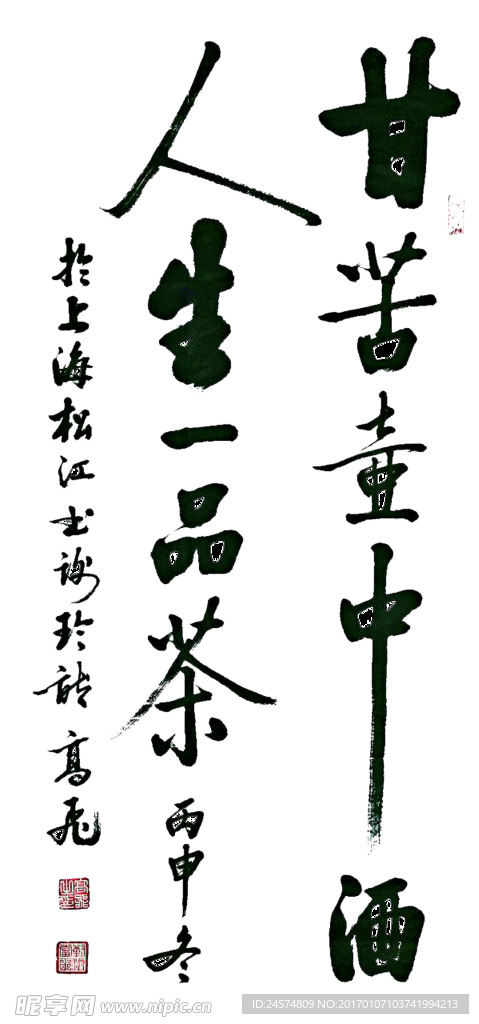 甘苦壶中酒
人生一品茶 丙申冬
於上海松江 谢玲诗 高飞
昵享网 www.nipic.cn
ID:24574809 NO:20170107103741994213